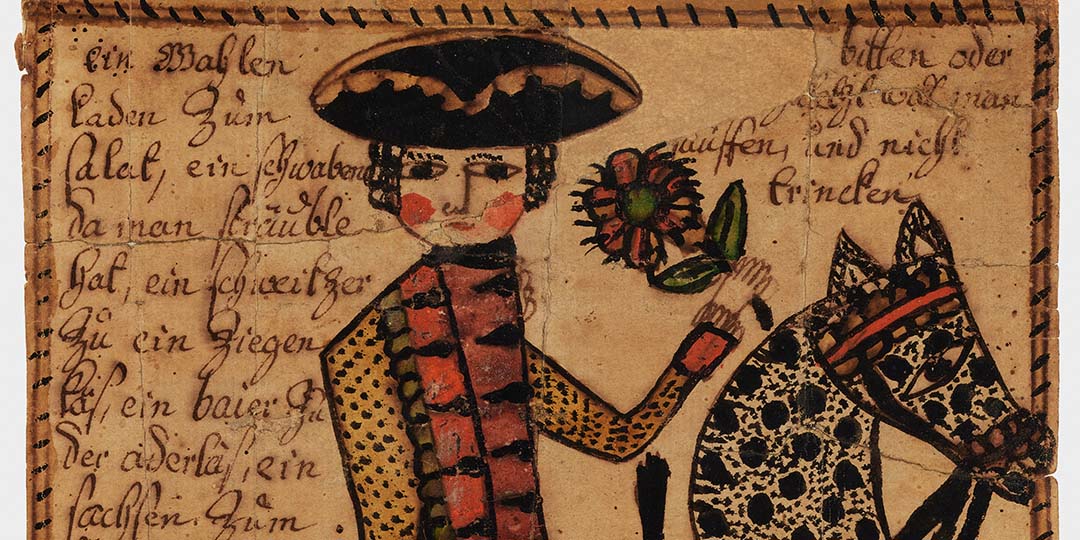 ein Wahlen
laden Zum
salat, ein schwabend
da man sträuble
hat, ein schweitzer
Zu ein Ziegen
käs, ein baier Zu
der aderläs, ein
sachsen Zum
bitten oder
was man
sauffen, und nicht
trincken